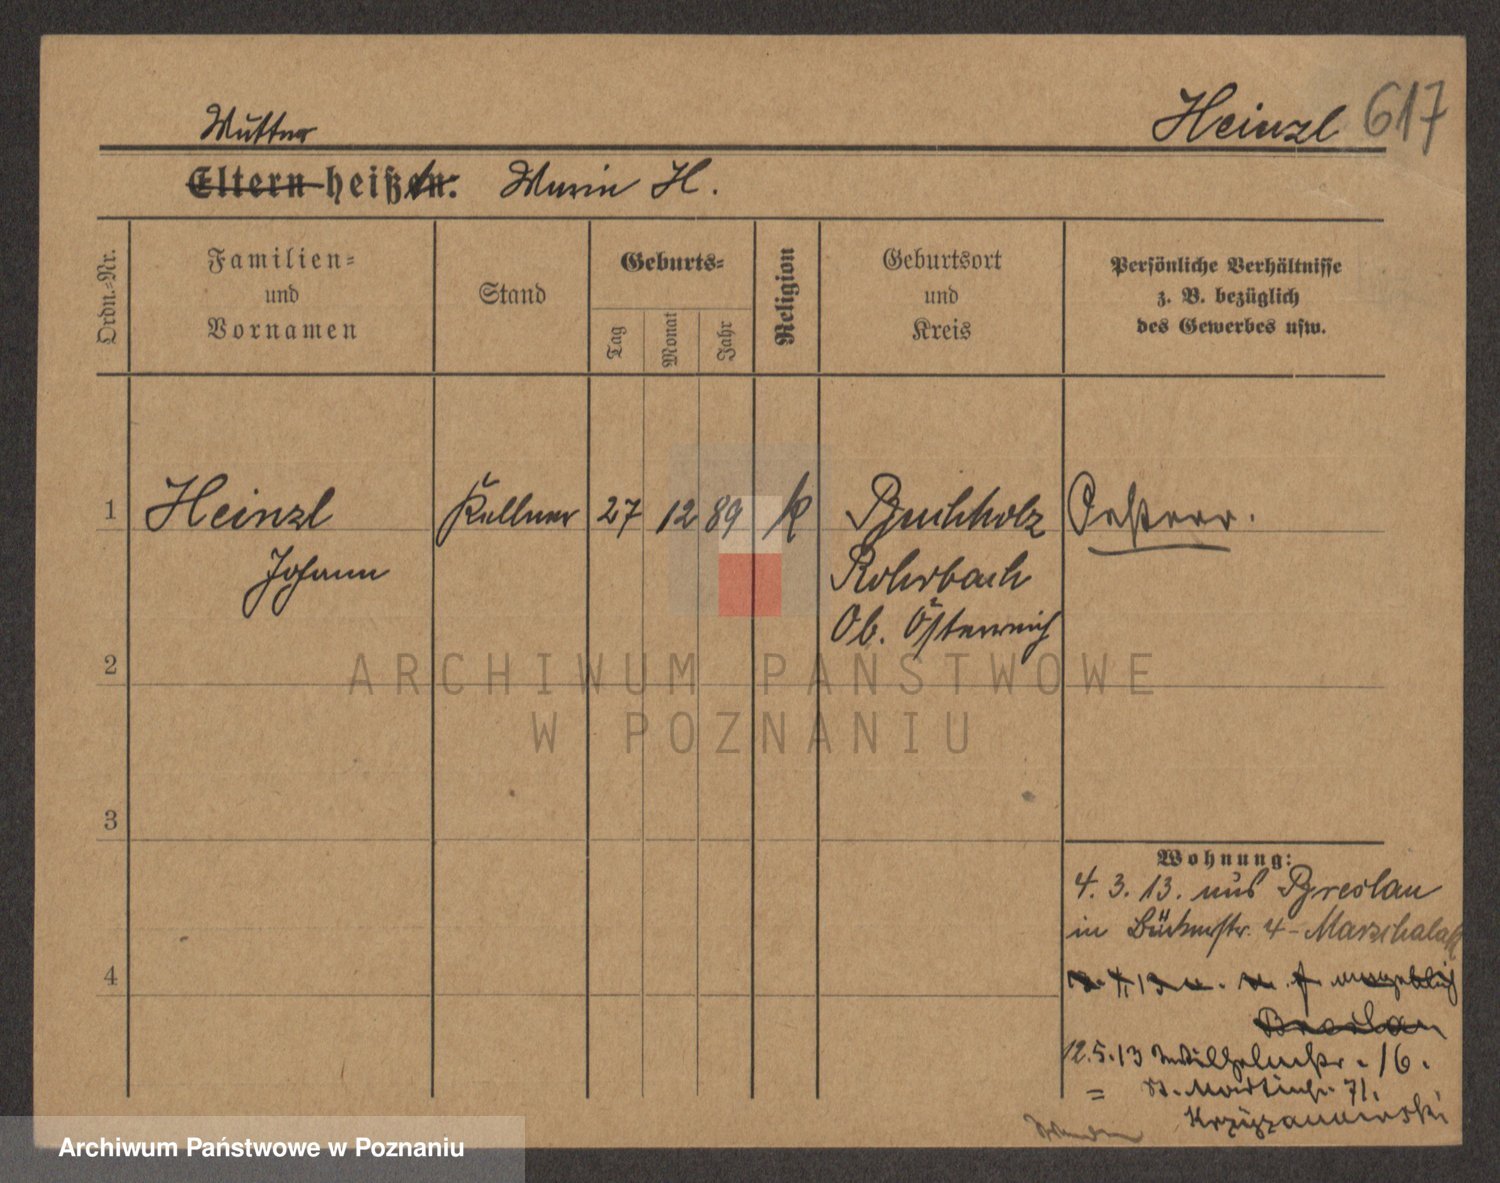 Heinzl 617
Mutter
Eltern heißen: Marie H.
Ordn.-Nr.
Familien-
und
Vornamen
Stand
Geburts-
Tag
Monat
Jahr
Religion
Geburtsort
und
Kreis
Persönliche Verhältnisse
z. B. bezüglich
des Gewerbes usw.
1 Heinzl Kellner 27 12 89 k Buchholz Oesterr.
Johann Rohrbach
Ob. Österreich
2
3
4
Wohnung:
4. 3. 13. aus Breslau
in Bäckerstr. 4 - Marschalak
angeblich
Breslau
12.5.13 Wilhelmstr. 16.
= St. Martinstr. 71.
Krzyzanowski
ARCHIWUM PAŃSTWOWE
W POZNANIU
Archiwum Państwowe w Poznaniu